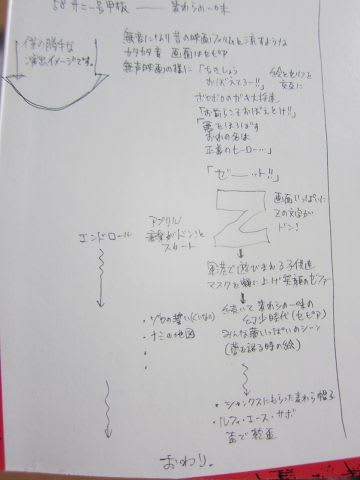 58 サニー号甲板 ── 麦わらの一味
僕の勝手な
演出イメージです。
無音になり昔の映画フィルムを流すような
カタカタ音 画面はセピア
無声映画の様に「ちきしょう
おぼえてろー!!」
絵とセリフと
交互に
ボロボロのガキ大将達
「お前らこそおぼえとけ!!」
「悪をほろぼす
おれの名は
正義のヒーロー…」
「ゼーーット!!」
Z
画面いっぱいに
Zの文字が
ドン!
エンドロール
アヴリル
音楽がドン!と
スタート
軍港で遊びまわる子供達
マスクを額に上げ笑顔のゼファー
続いて麦わらの一味の
幼少時代(セピア)
みんな夢いっぱいのシーン
(夢を語る時の絵)
・ゾロの誓い(くいなと)
・ナミの地図
・
・
・シャンクスにもらった麦わら帽子
・ルフィ・エース・サボ
盃で乾盃
おわり。